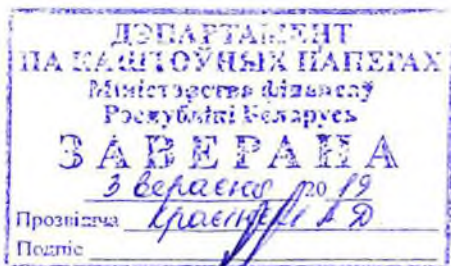 ДЭПАРТАМЕНТ
ПА КАШТОЎНЫХ ПАПЕРАХ
Міністэрства фінансаў
Рэспублікі Беларусь
ЗАВЕРАНА
3 верасня 2019
Прозвішча
Подпіс